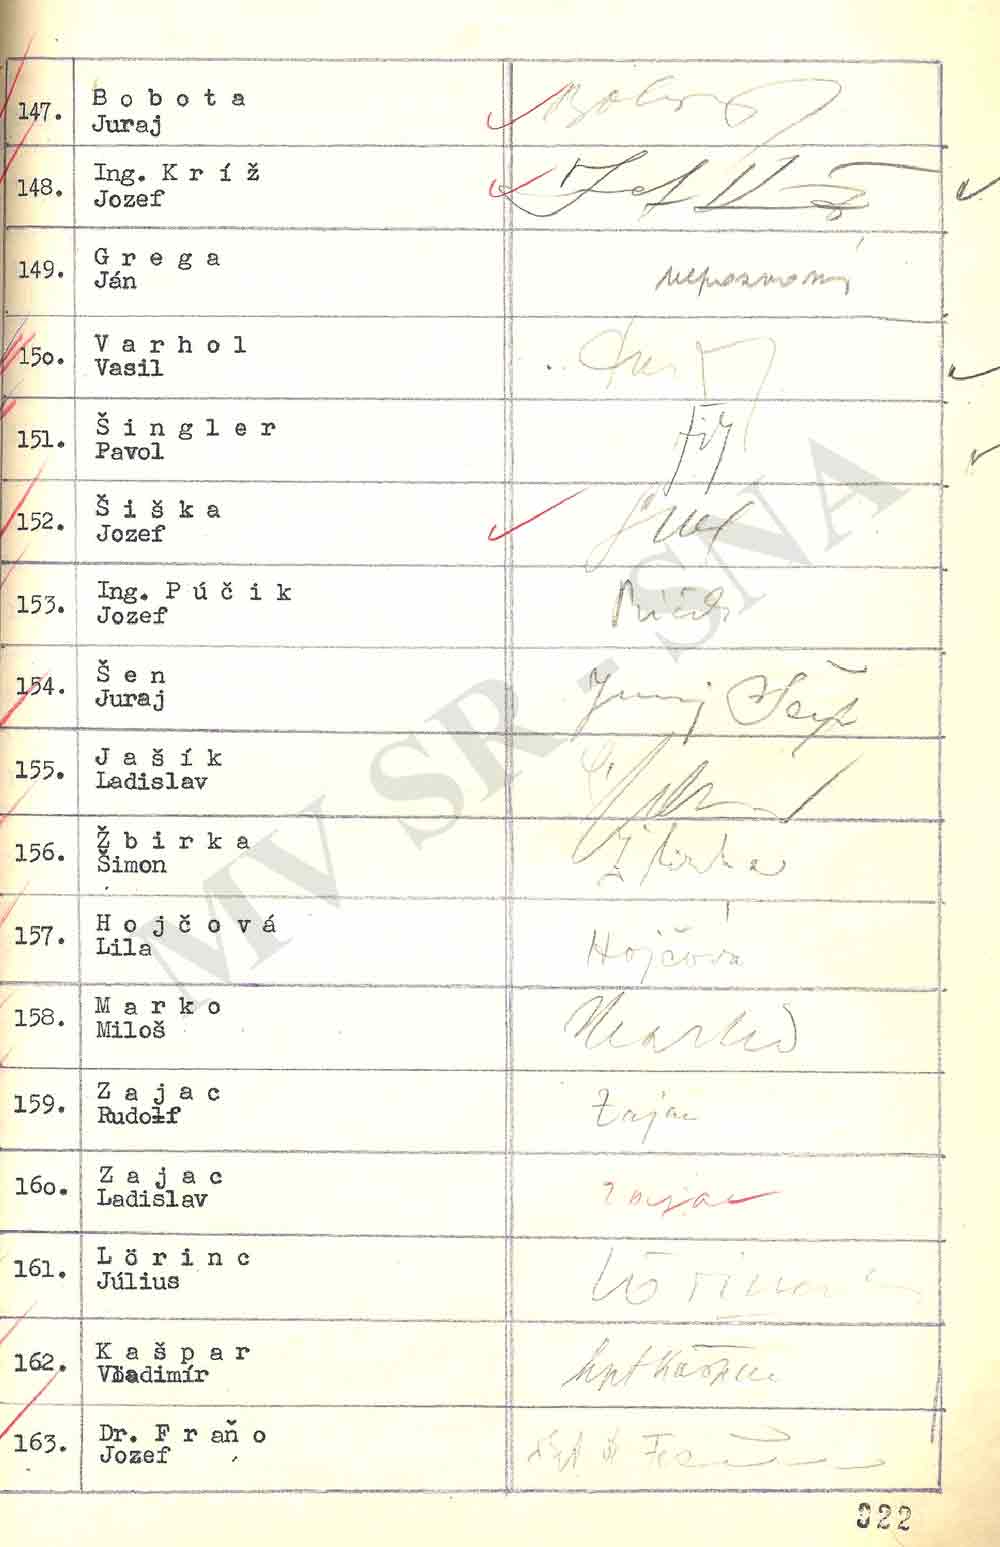 147. B o b o t a
Juraj
148. Ing. K r í ž
Jozef
149. G r e g a
Ján
150. V a r h o l
Vasil
151. Š i n g l e r
Pavol
152. Š i š k a
Jozef
153. Ing. P ú č i k
Jozef
Púčik
154. Š e n
Juraj
Juraj Šen
155. J a š í k
Ladislav
156. Ž b i r k a
Šimon
Žbirka
157. H o j č o v á
Lila
Hojčová
158. M a r k o
Miloš
Marko
159. Z a j a c
Rudolf
Zajac
160. Z a j a c
Ladislav
Zajac
161. L ö r i n c
Július
162. K a š p a r
Vladimír
163. Dr. F r aň o
Jozef
MV SR - SNA
022